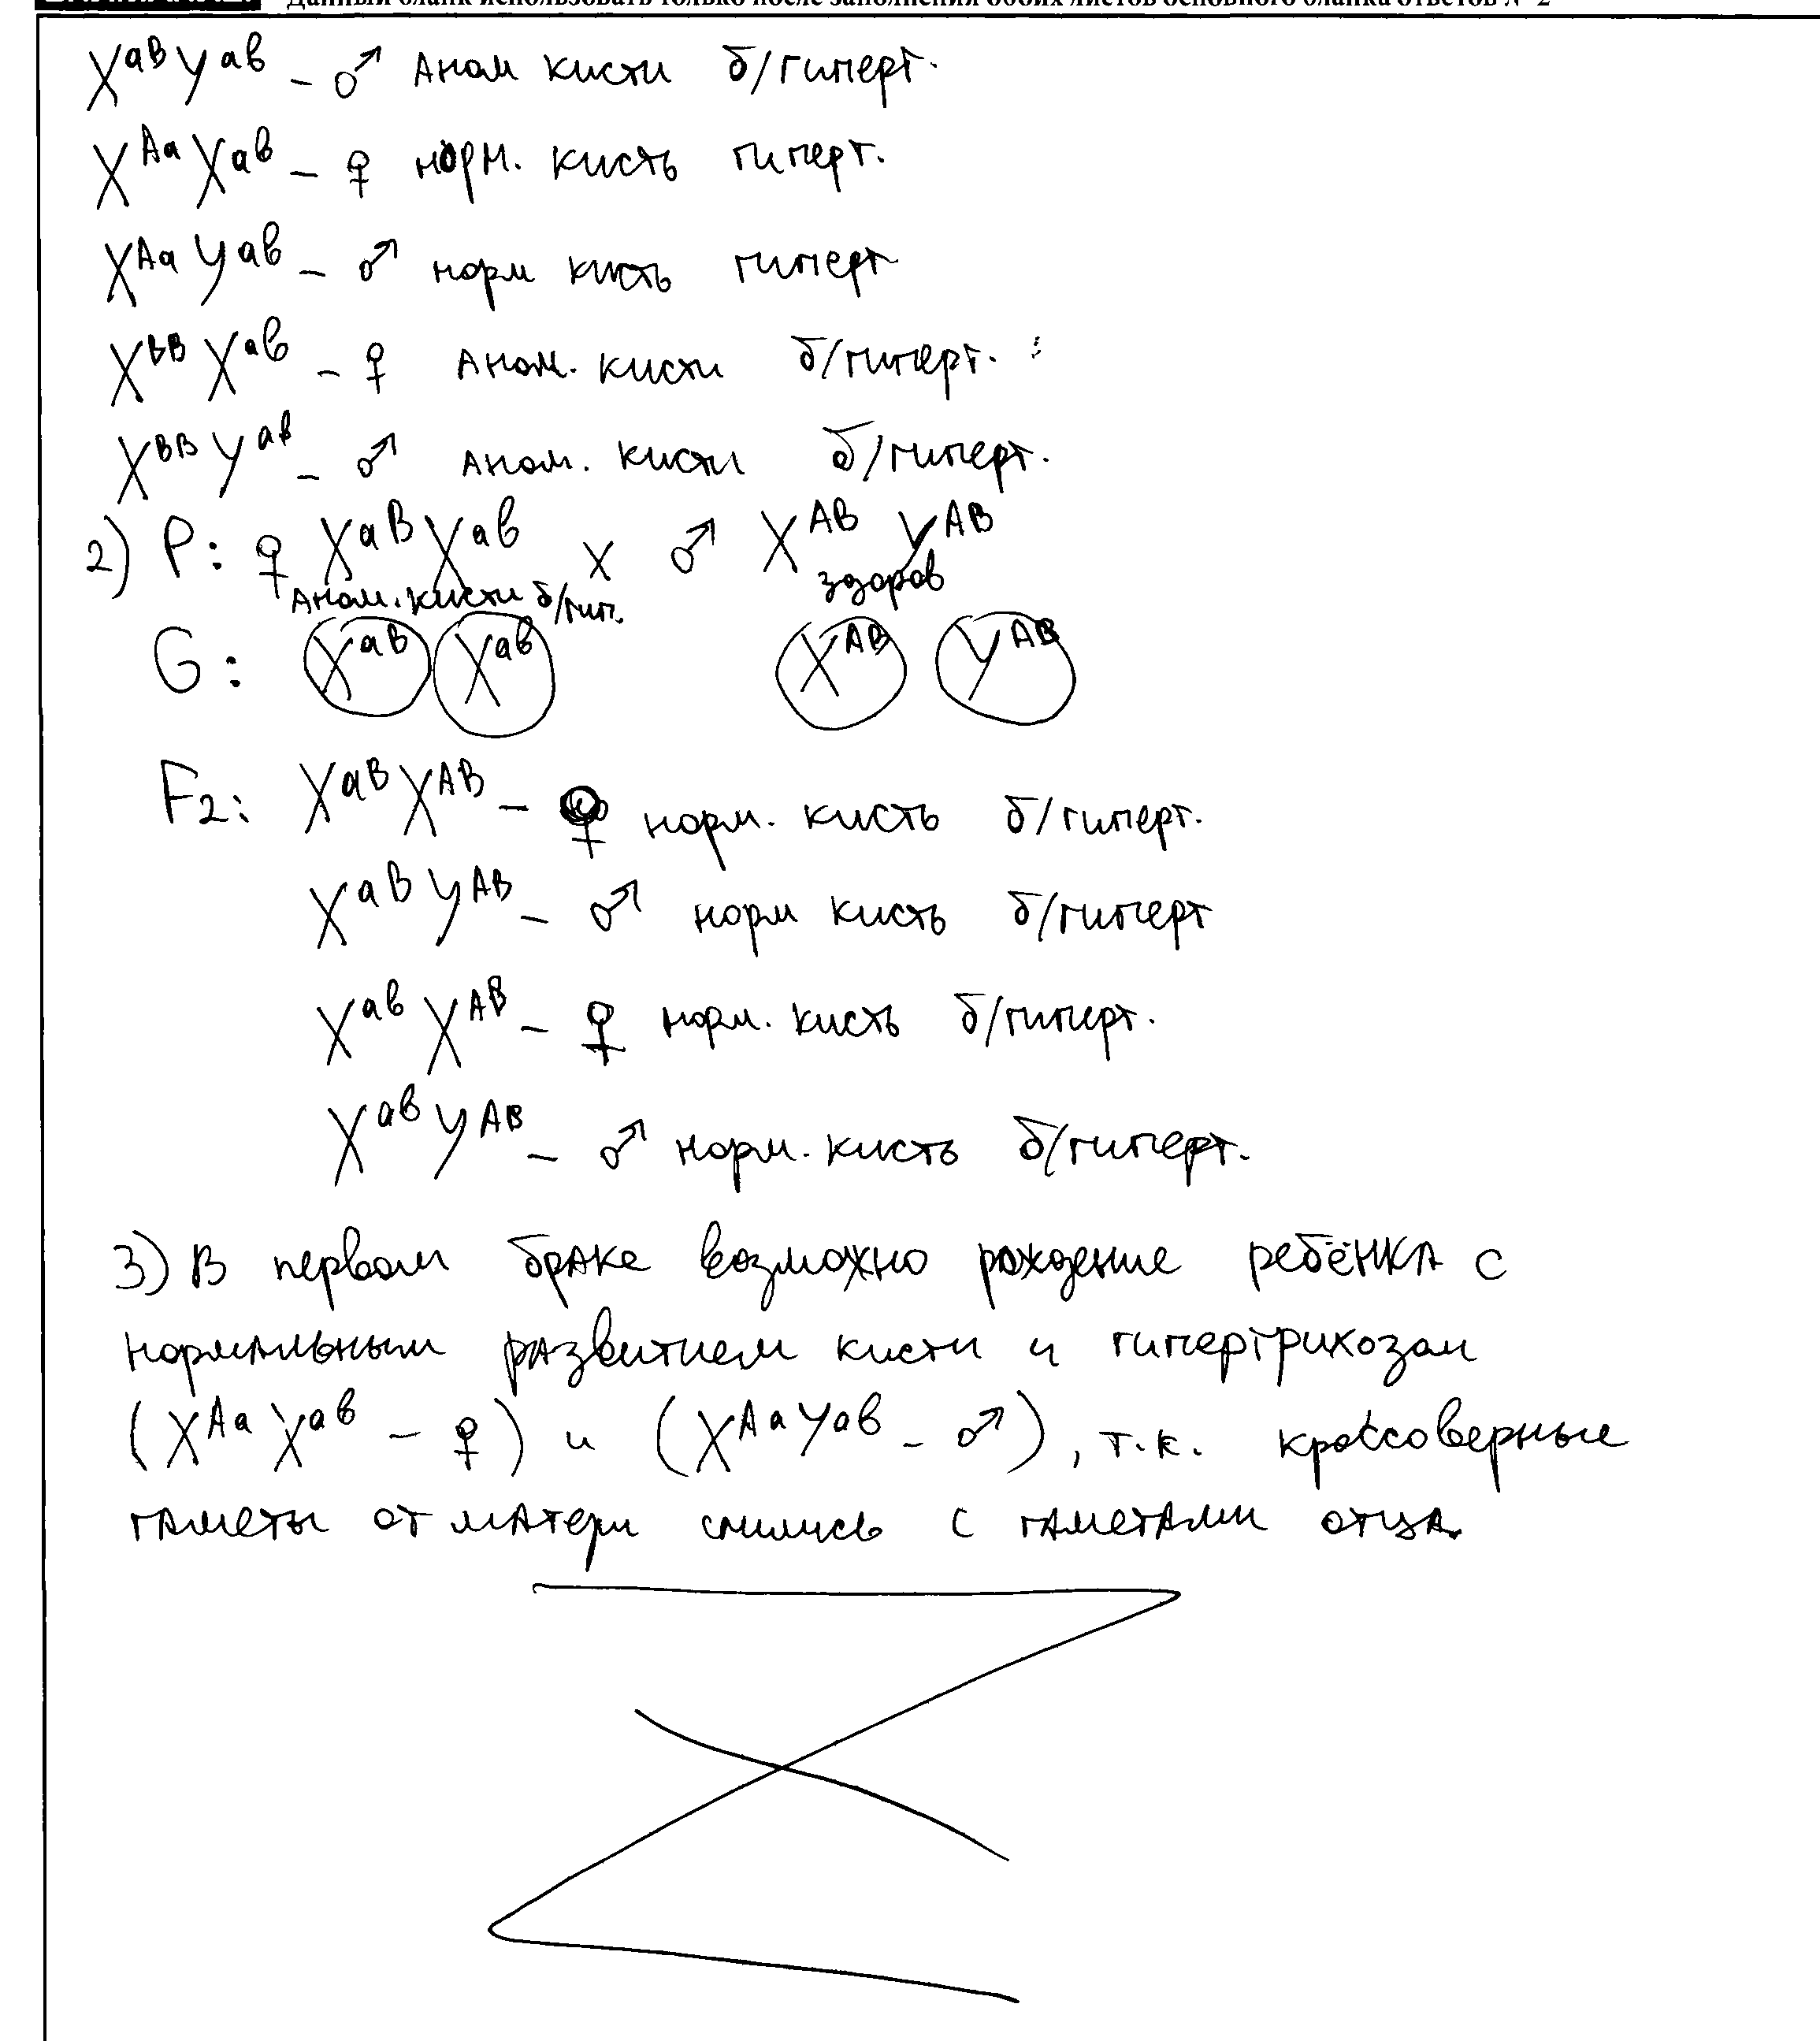 Данный бланк использовать только после заполнения обоих листов основного бланка ответов № 2
X^aB Y^ав – ♂ Аном кисти б/гиперт.
X^Аа X^ав – ♀ норм. кисть гиперт.
X^Аа Y^ав – ♂ норм кисть гиперт
X^ВВ X^ав – ♀ Аном. кисти б/гиперт.
X^ВВ Y^ав – ♂ Аном. кисти б/гиперт.
2) P: ♀ X^аВ X^ав x ♂ X^АВ Y^АВ
Аном. кисти б/гип. здоров
G: X^аВ X^ав X^АВ Y^АВ
F2: X^аВ X^АВ – ♀ норм. кисть б/гиперт.
X^аВ Y^АВ – ♂ норм кисть б/гиперт
X^ав X^АВ – ♀ норм. кисть б/гиперт.
X^ав Y^АВ – ♂ норм. кисть б/гиперт.
3) В первом браке возможно рождение ребёнка с
нормальным развитием кисти и гипертрихозом
(X^Аа X^ав – ♀) и (X^Аа Y^ав – ♂), т.к. кроссоверные
гаметы от матери слились с гаметами отца.